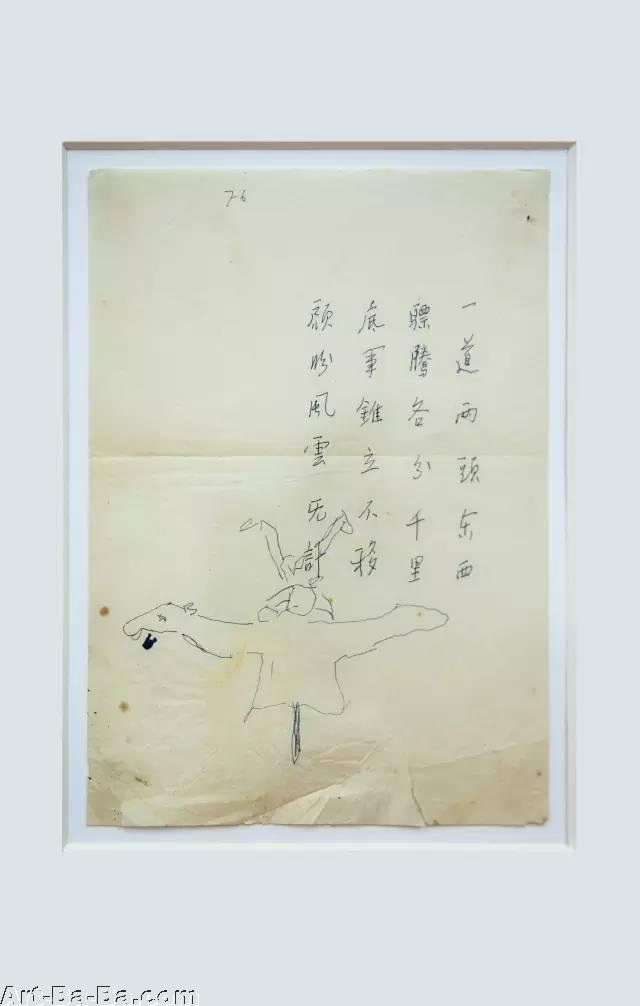 7-6
一道两頭东西
驃騰各分千里
底事錐立不移
顧盼風雲无計
Art-Ba-Ba.com